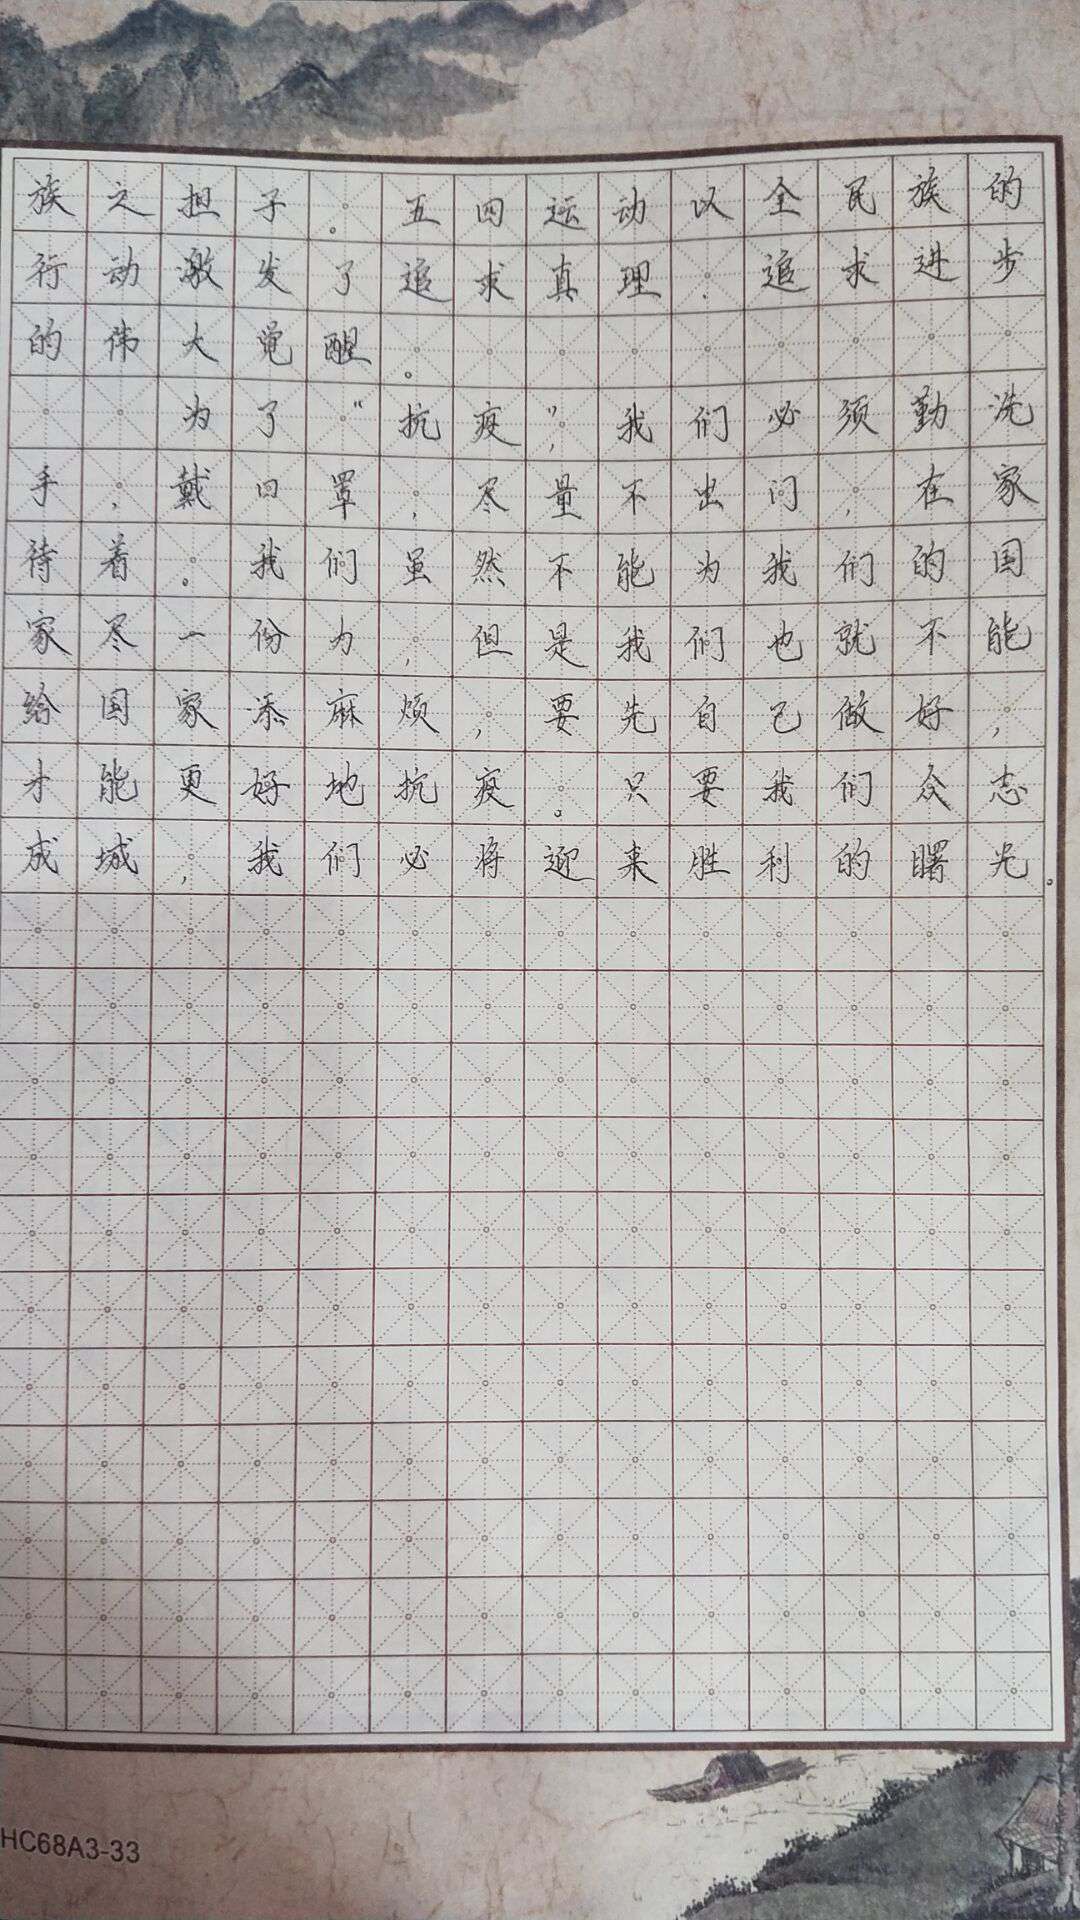 族之担子。五四运动以全民族的
行动激发了追求真理、追求进步
的伟大觉醒。
为了“抗疫”,我们必须勤洗
手,戴口罩,尽量不出门,在家
待着。我们虽然不能为我们的国
家尽一份力,但是我们也就不能
给国家添麻烦,要先自己做好,
才能更好地抗疫。只要我们众志
成城,我们必将迎来胜利的曙光。
HC68A3-33